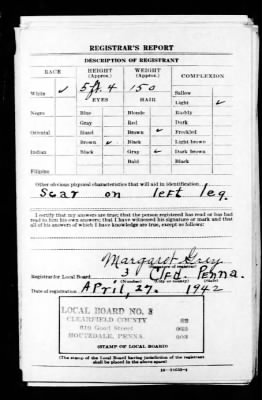 REGISTRAR'S REPORT
DESCRIPTION OF REGISTRANT
RACE HEIGHT (Approx.) WEIGHT (Approx.) COMPLEXION
5 ft. 4 150 Sallow
White ✓ EYES HAIR Light ✓
Negro Blue Blonde Ruddy
Gray Red Dark
Oriental Hazel Brown ✓ Freckled
Brown ✓ Black Light brown
Indian Black Gray Dark brown
Bald Black
Filipino
Other obvious physical characteristics that will aid in identification
Scar on left leg.
I certify that my answers are true; that the person registered has read or has had
read to him his own answers; that I have witnessed his signature or mark and that
all of his answers of which I have knowledge are true, except as follows:
Margaret Grey
(Signature of registrar)
Registrar for Local Board 3 Clfd. Penna.
(Number) (City or county) (State)
Date of registration April, 27, 1942
LOCAL BOARD NO. 3
CLEARFIELD COUNTY
Good Street
HOUTZDALE, PENNA.
(STAMP OF LOCAL BOARD)
(The stamp of the Local Board having jurisdiction of the registrant
shall be placed in the above space)